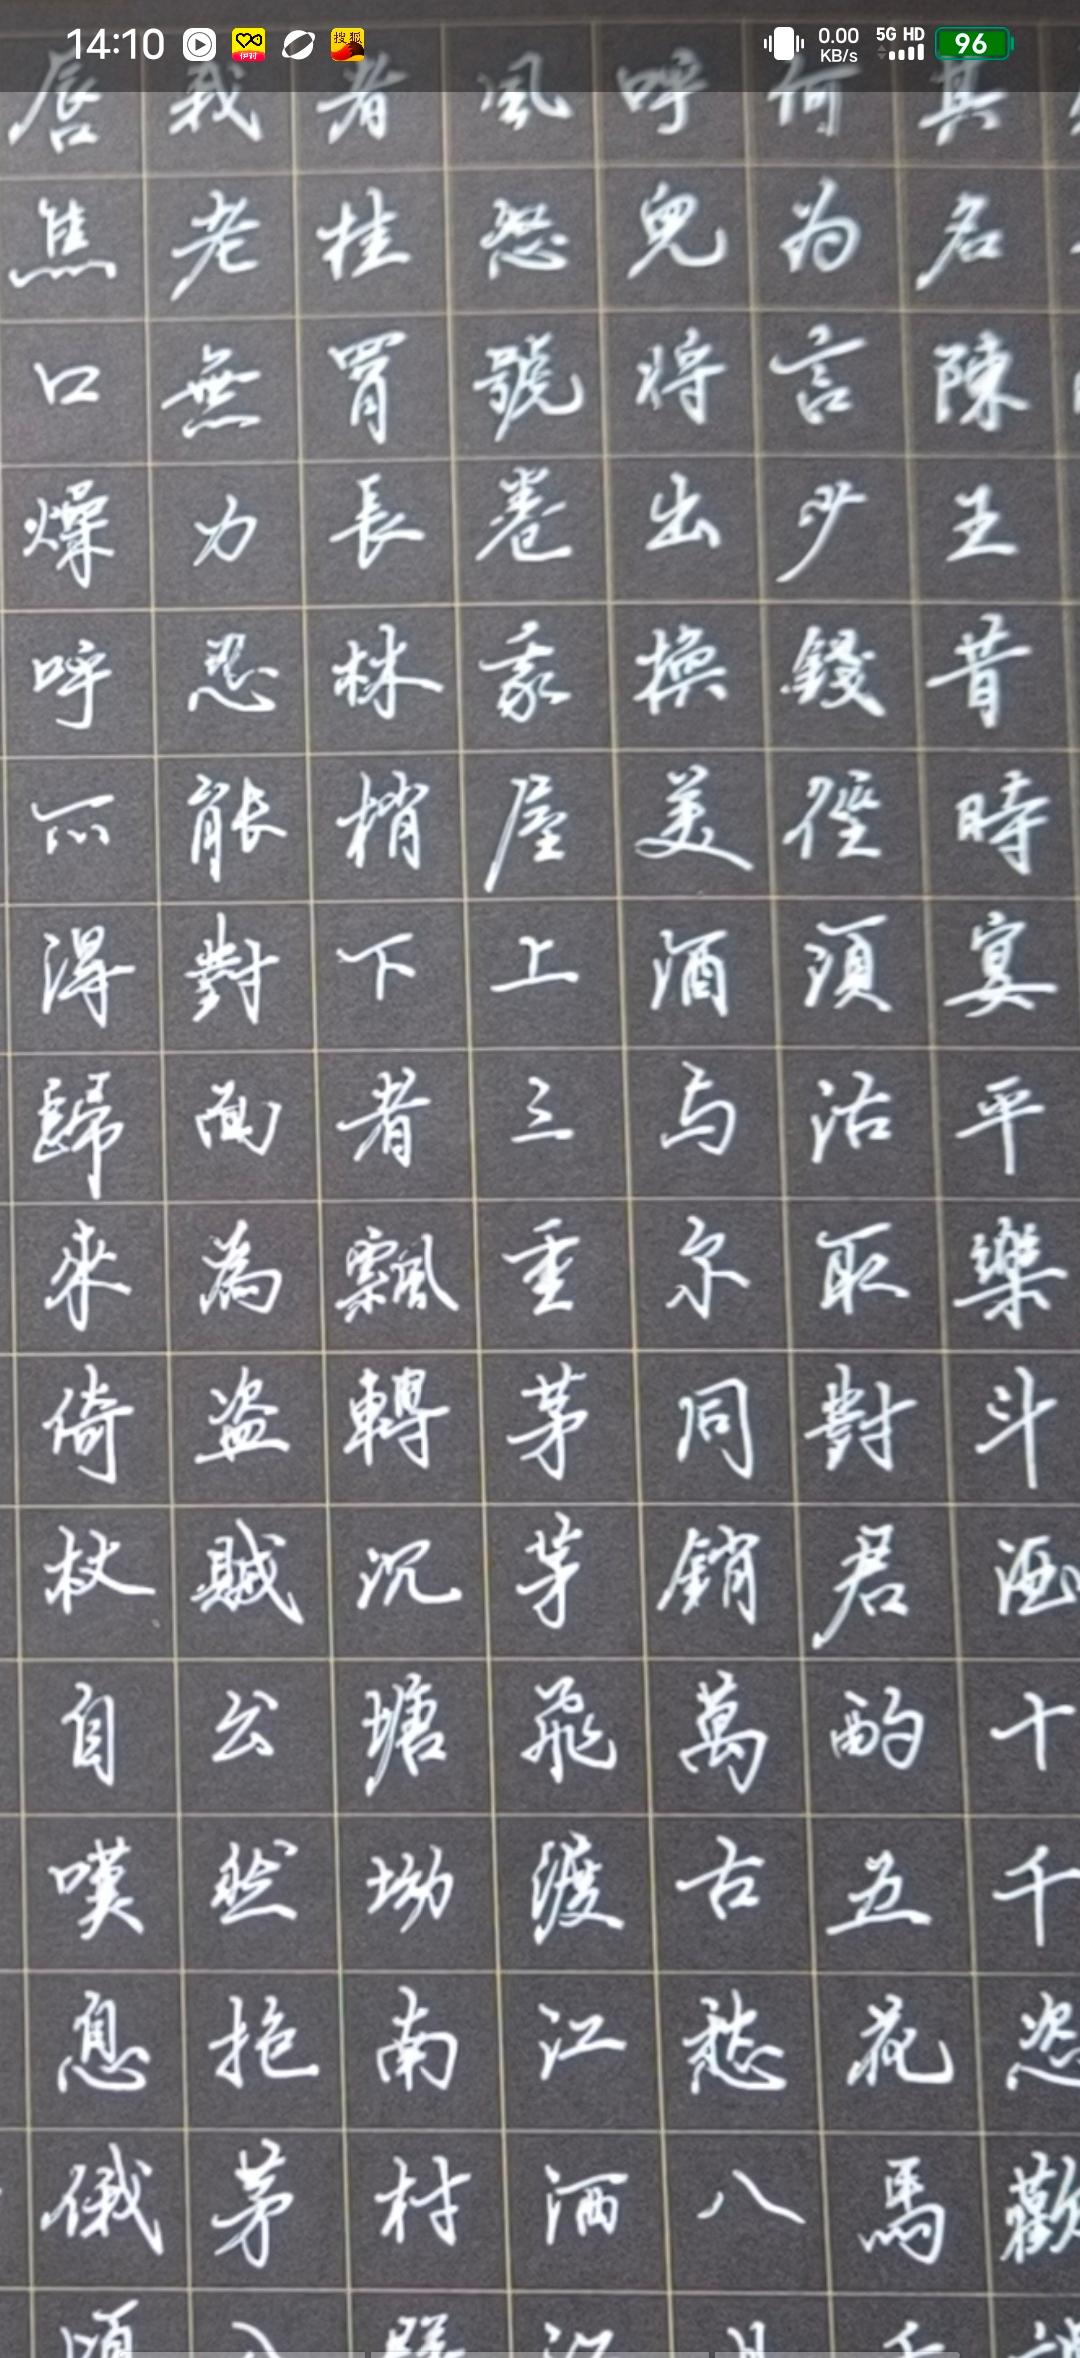 14:10
伊对
搜狐
0.00 KB/s
5G HD
96
其名陳王昔時宴平樂斗酒十千恣歡
何為言少錢徑須沽取對君酌五花馬千
呼兒將出換美酒与尔同銷萬古愁八月
風怒號卷我屋上三重茅茅飛渡江洒江
者挂罥長林梢下者飄轉沉塘坳南村
我老無力忍能對面為盜賊公然抱茅入
唇焦口燥呼不得歸來倚杖自嘆息俄頃